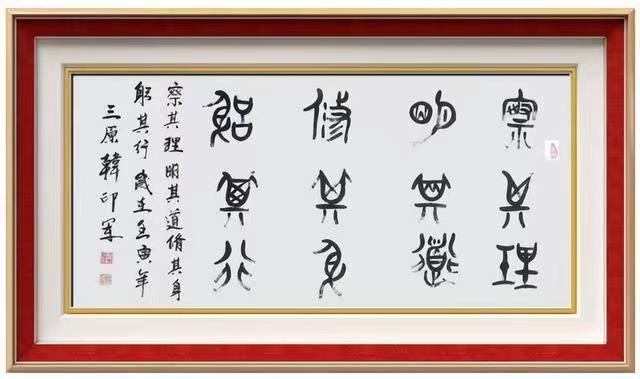 察其理
明其道
修其身
躬其行
察其理明其道脩其身
躬其行歲在壬寅年
三原韓印軍